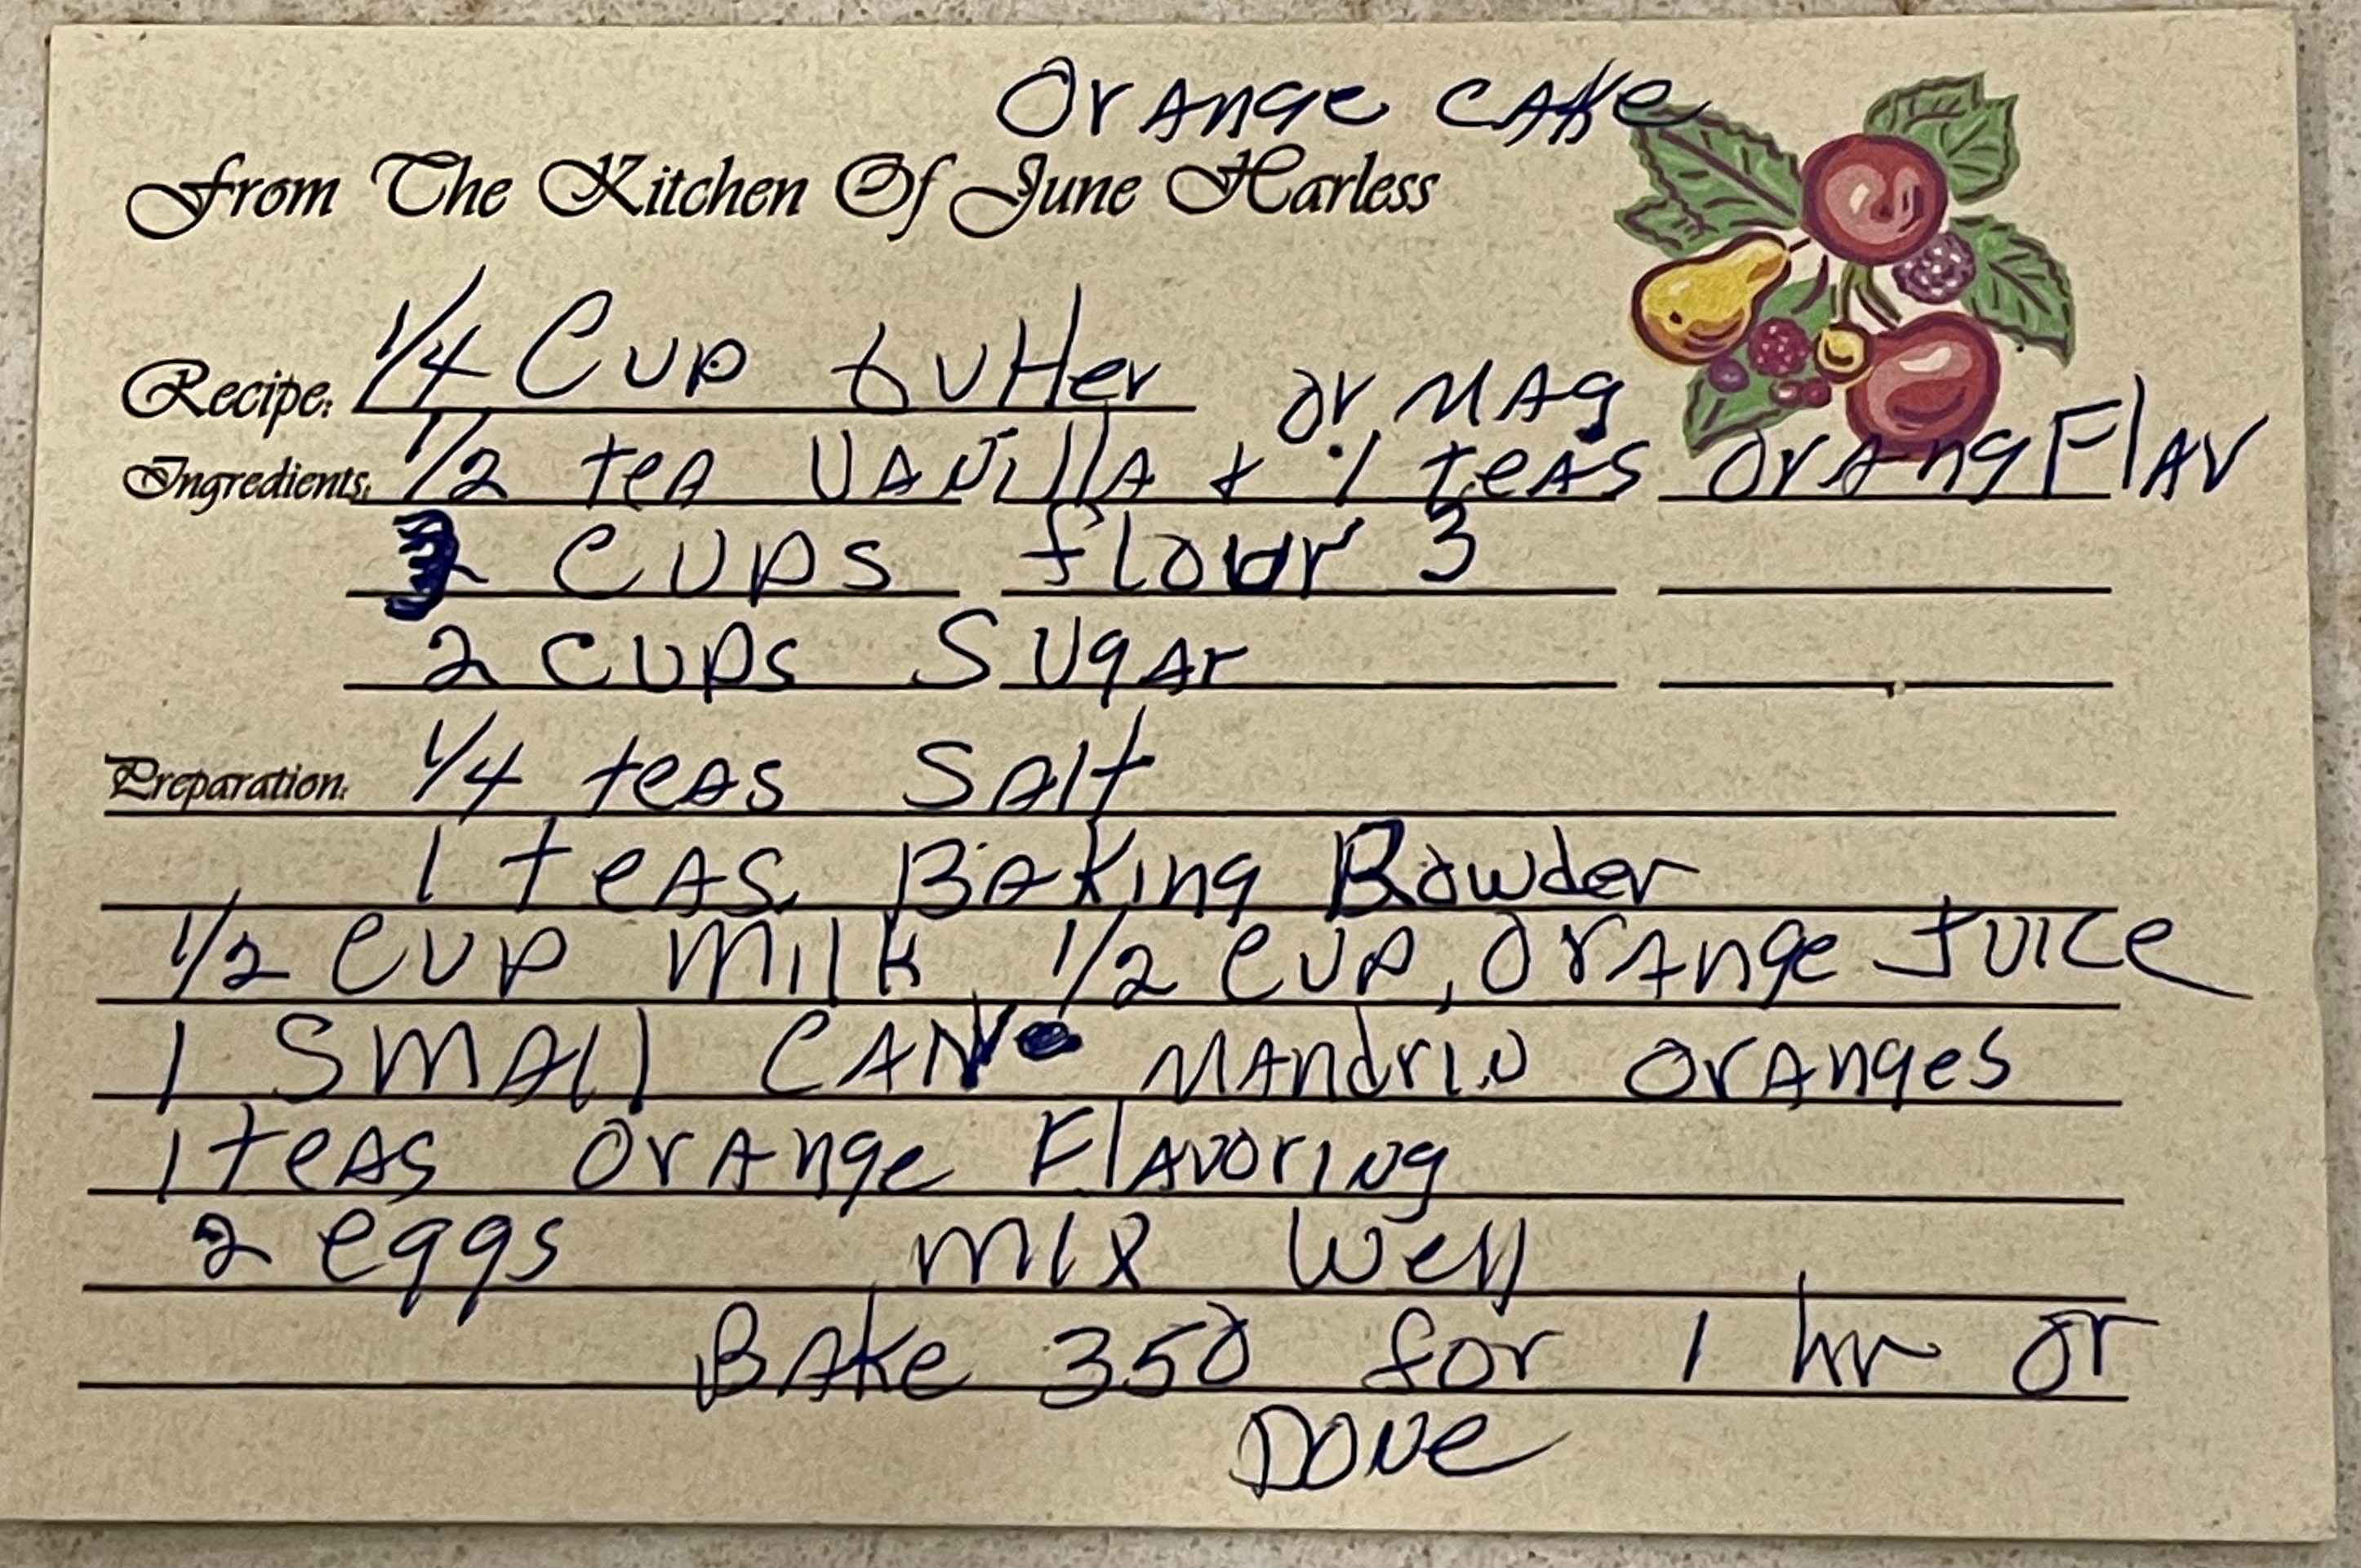 Orange cake
From The Kitchen Of June Harless
Recipe: 1/4 Cup butter or MAg
Ingredients: 1/2 teA VANillA & 1 teAs orAng FlAv
cups flour 3
2 cups Sugar
Preparation: 1/4 teas Salt
1 teAs. BAKing Bowder
1/2 Cup milk, 1/2 Cup, OrAnge Juice
1 SmAll CAN MAndrin orAnges
1 teAs OrAnge FlAvoring
2 eggs mix Well
BAke 350 for 1 hr or
DONe